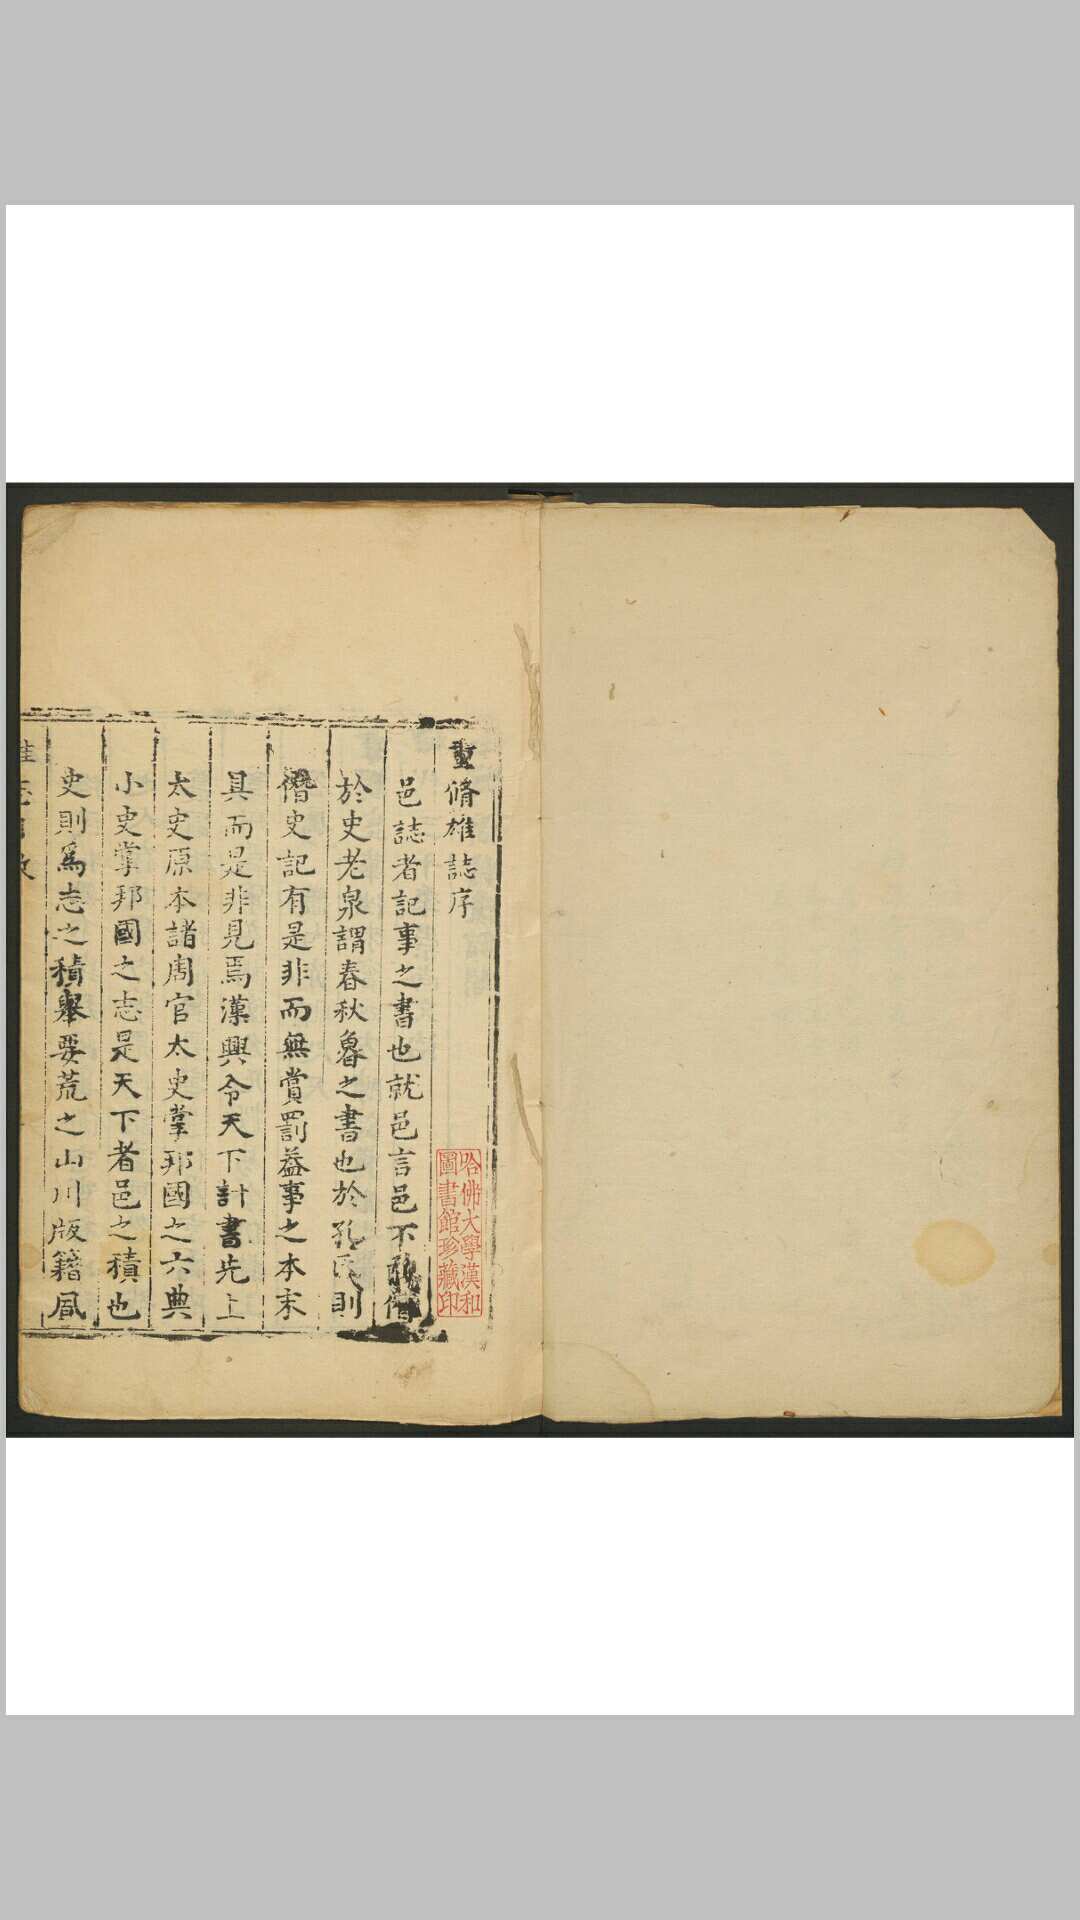 重脩雄誌序
邑誌者記事之書也就邑言邑不敢僭
於史老泉謂春秋魯之書也於孔氏則
僭史記有是非而無賞罰益事之本末
具而是非見焉漢興令天下計書先上
太史原本諸周官太史掌邦國之六典
小史掌邦國之志是天下者邑之積也
史則爲志之積舉要荒之山川版籍風
哈佛大學漢和
圖書館珍藏印